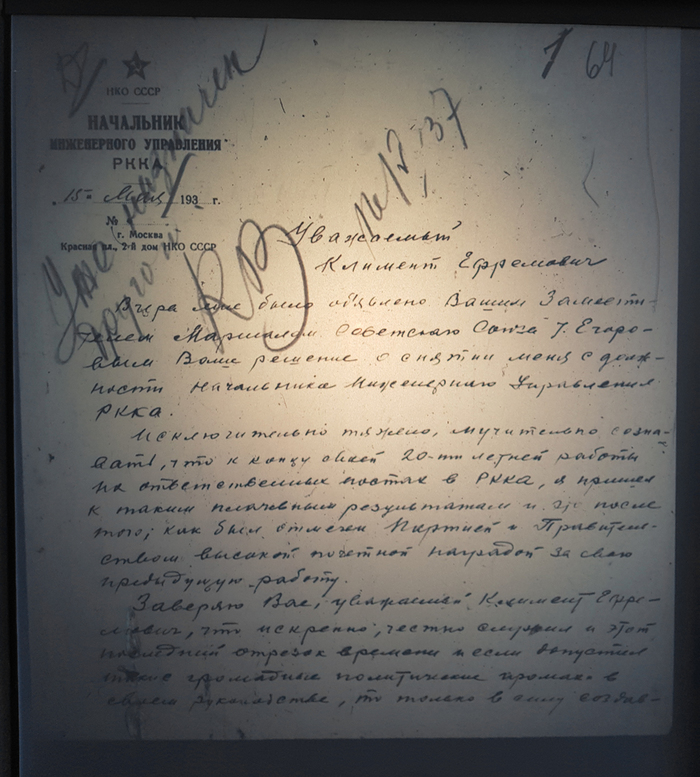 1 64
НКО СССР
НАЧАЛЬНИК
ИНЖЕНЕРНОГО УПРАВЛЕНИЯ
РККА
"15" Мая 193 г.
№
г. Москва
Красная пл., 2-й дом НКО СССР
Уже назначен
другой.
КВ
16/V, 37
Уважаемый
Климент Ефремович
Вчера мне было объявлено Вашим Замести-
телем Маршалом Советского Союза т. Егоро-
вым Ваше решение о снятии меня с долж-
ности Начальника Инженерного Управления
РККА.
Исключительно тяжело, мучительно созна-
вать, что к концу своей 20-ти летней работы
на ответственных постах в РККА, я пришел
к таким плачевным результатам и это после
того, как был отмечен Партией и Правитель-
ством высокой почетной наградой за свою
предыдущую работу.
Заверяю Вас, уважаемый Климент Ефре-
мович, что искренно, честно служил и этот
последний отрезок времени и если допустил
такие громадные политические промахи в
своем руководстве, то только в силу создав-